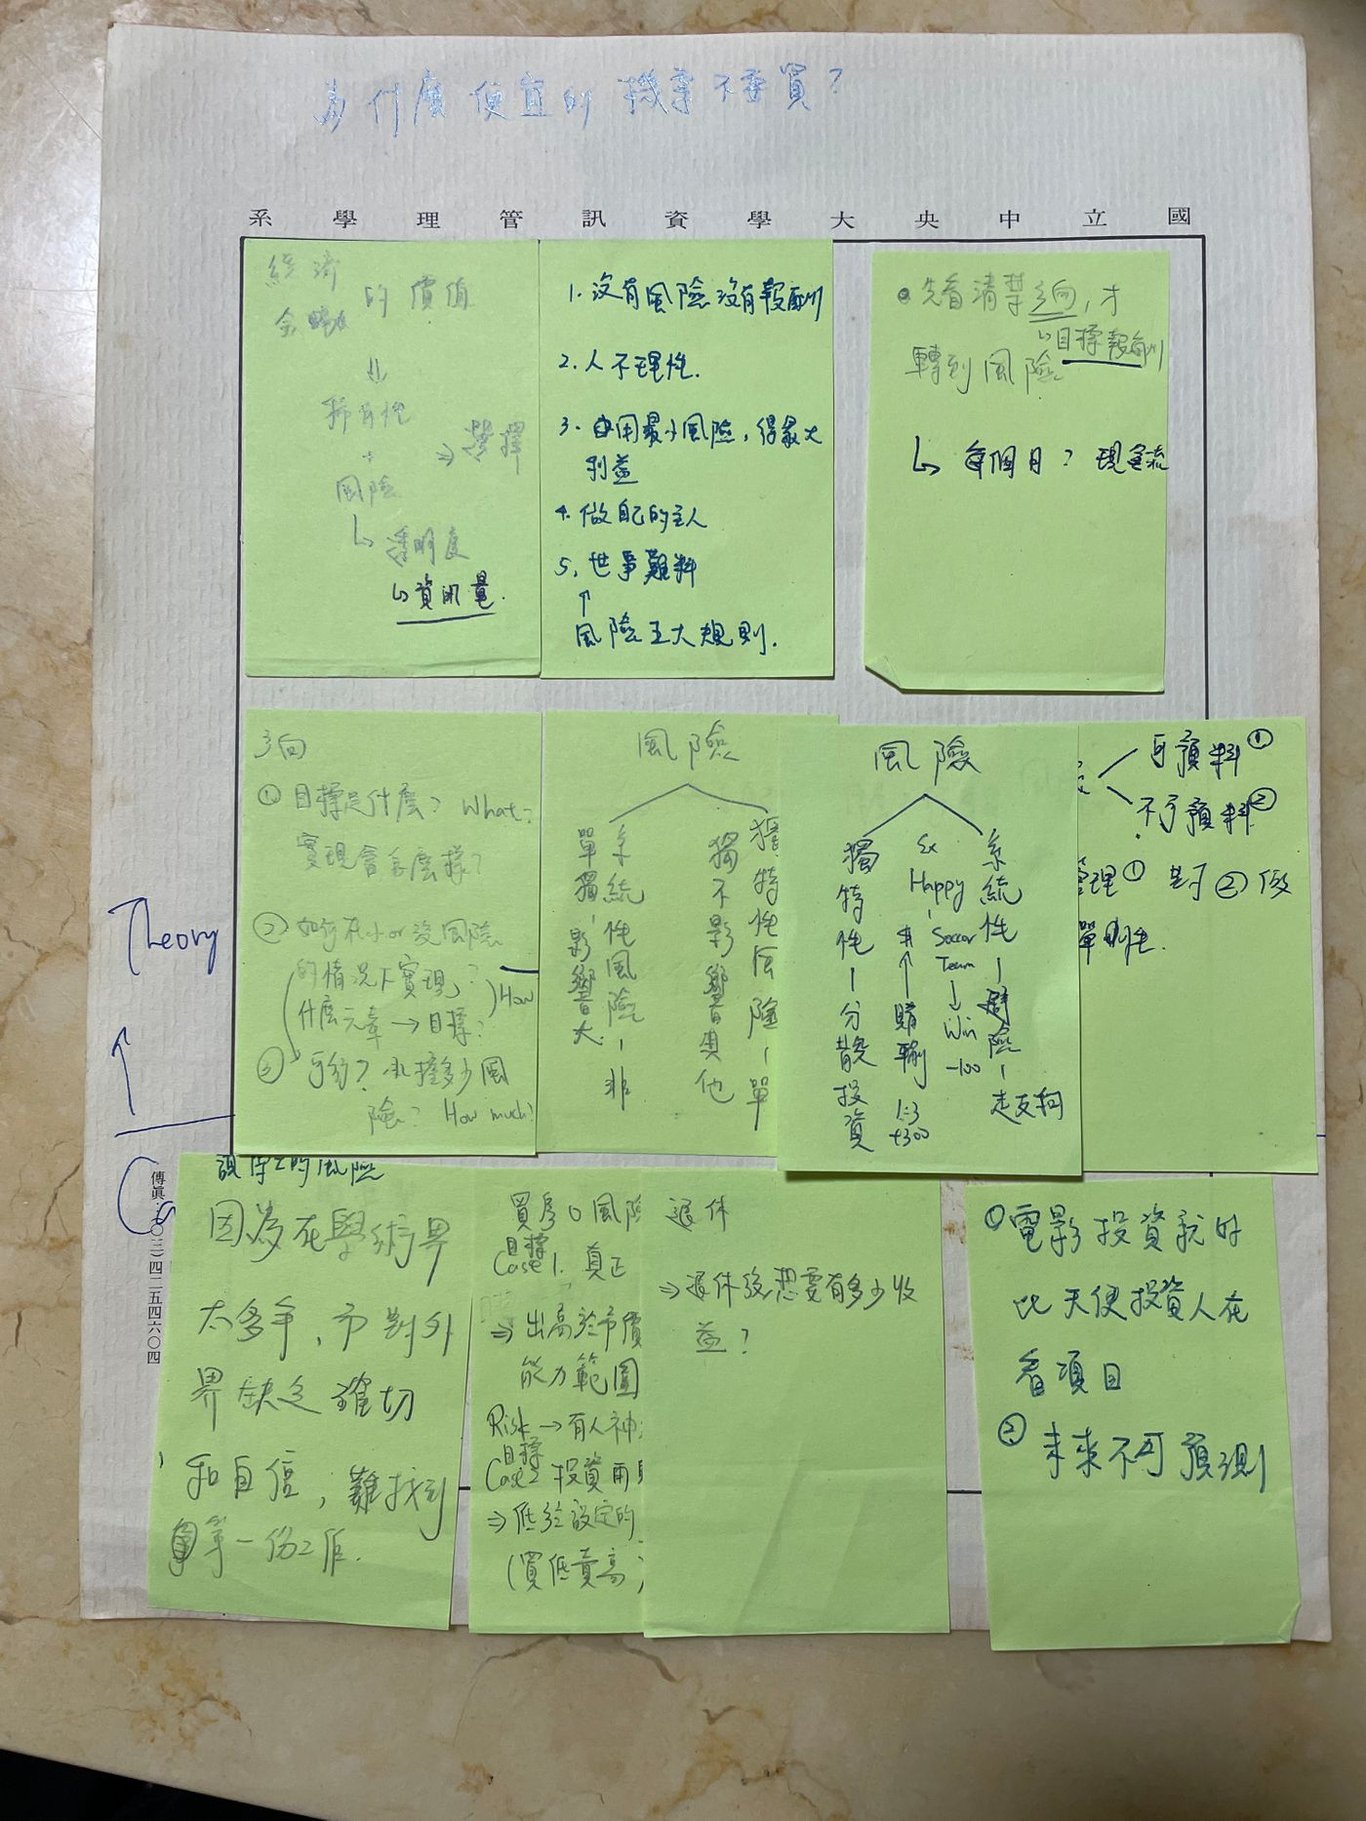 為什麼便宜的機票不要買?
國立中央大學資訊管理學系
經濟
金融
的價值
⇓
稀有性
+
風險
⇒ 選擇
↳ 透明度
↳ 資訊量.
1. 沒有風險沒有報酬
2. 人不理性.
3. 用最小風險,得最大
利益
4. 做自己的主人
5. 世事難料
↑
風險五大規則.
先看清楚方向,才
↳ 目標報酬
轉到風險
↳ 每個月? 現金流
方向
① 目標是什麼? What?
實現會怎麼樣?
② 如何在小or沒風險
的情況下實現?
什麼元素→目標?
How
③ 可行? 承擔多少風
險? How much?
風險
系統性風險-非
單獨-影響大
獨特性風險-單
獨不影響其他
風險
獨特性-分散投資
Ex
Happy
賭輸
1:3
+300
Soccer
Team
↓
Win
-100
系統性-避險-走反向
可預料①
不可預料②
管理① 對②做
Theory
傳眞:(〇三)四二五四六〇四
的風險
因為在學術界
太多年,而對外
界缺乏確切
和自信,難找到
第一份工作.
買房 0 風險
目標
Case 1. 真正
⇒ 出高於市價
能力範圍
Risk → 有人神
目標
Case 2 投資用
⇒ 低於設定的
(買低賣高
退休
⇒ 退休後想要有多少收
益?
① 電影投資就好
比天使投資人在
看項目
② 未來不可預測